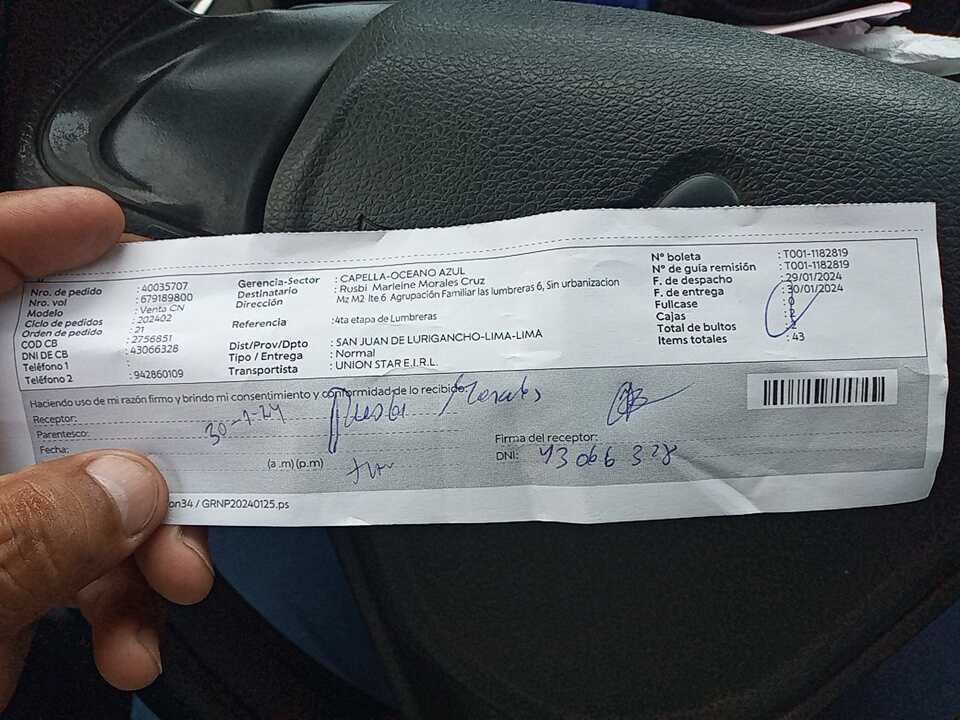 Nro. de pedido : 40035707
Nro. vol : 679189800
Modelo : Venta CN
Ciclo de pedidos : 202402
Orden de pedido : 21
COD CB : 2756851
DNI DE CB : 43066328
Teléfono 1 :
Teléfono 2 : 942860109
Gerencia-Sector : CAPELLA-OCEANO AZUL
Destinatario : Rusbi Marleine Morales Cruz
Dirección Mz M2 lte 6 Agrupación Familiar las lumbreras 6, Sin urbanizacion
Referencia : 4ta etapa de Lumbreras
Dist/Prov/Dpto : SAN JUAN DE LURIGANCHO-LIMA-LIMA
Tipo / Entrega : Normal
Transportista : UNION STAR E.I.R.L.
N° boleta : T001-1182819
N° de guía remisión : T001-1182819
F. de despacho : 29/01/2024
F. de entrega : 30/01/2024
Fullcase : 0
Cajas : 2
Total de bultos : 2
Items totales : 43
Haciendo uso de mi razón firmo y brindo mi consentimiento y conformidad de lo recibido:
Receptor: Rusbi Morales
Parentesco:
Fecha: 30-1-24
(a .m) (p.m)
Firma del receptor:
DNI: 43066328
on34 / GRNP20240125.ps